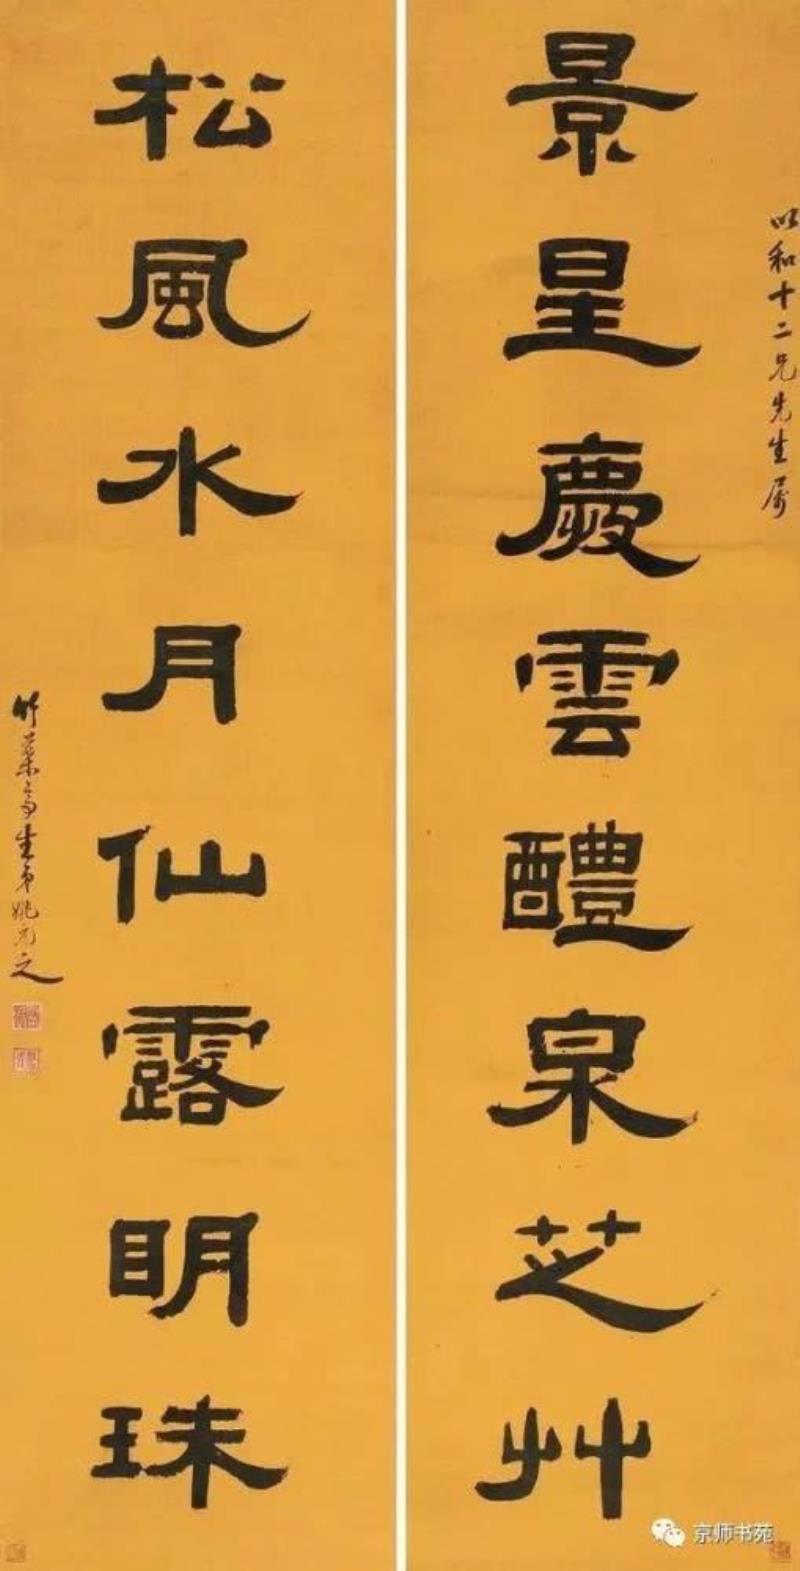 以和十二兄先生属
景星慶雲醴泉芝艸
松風水月仙露明珠
竹葉亭生弟姚元之
京师书苑